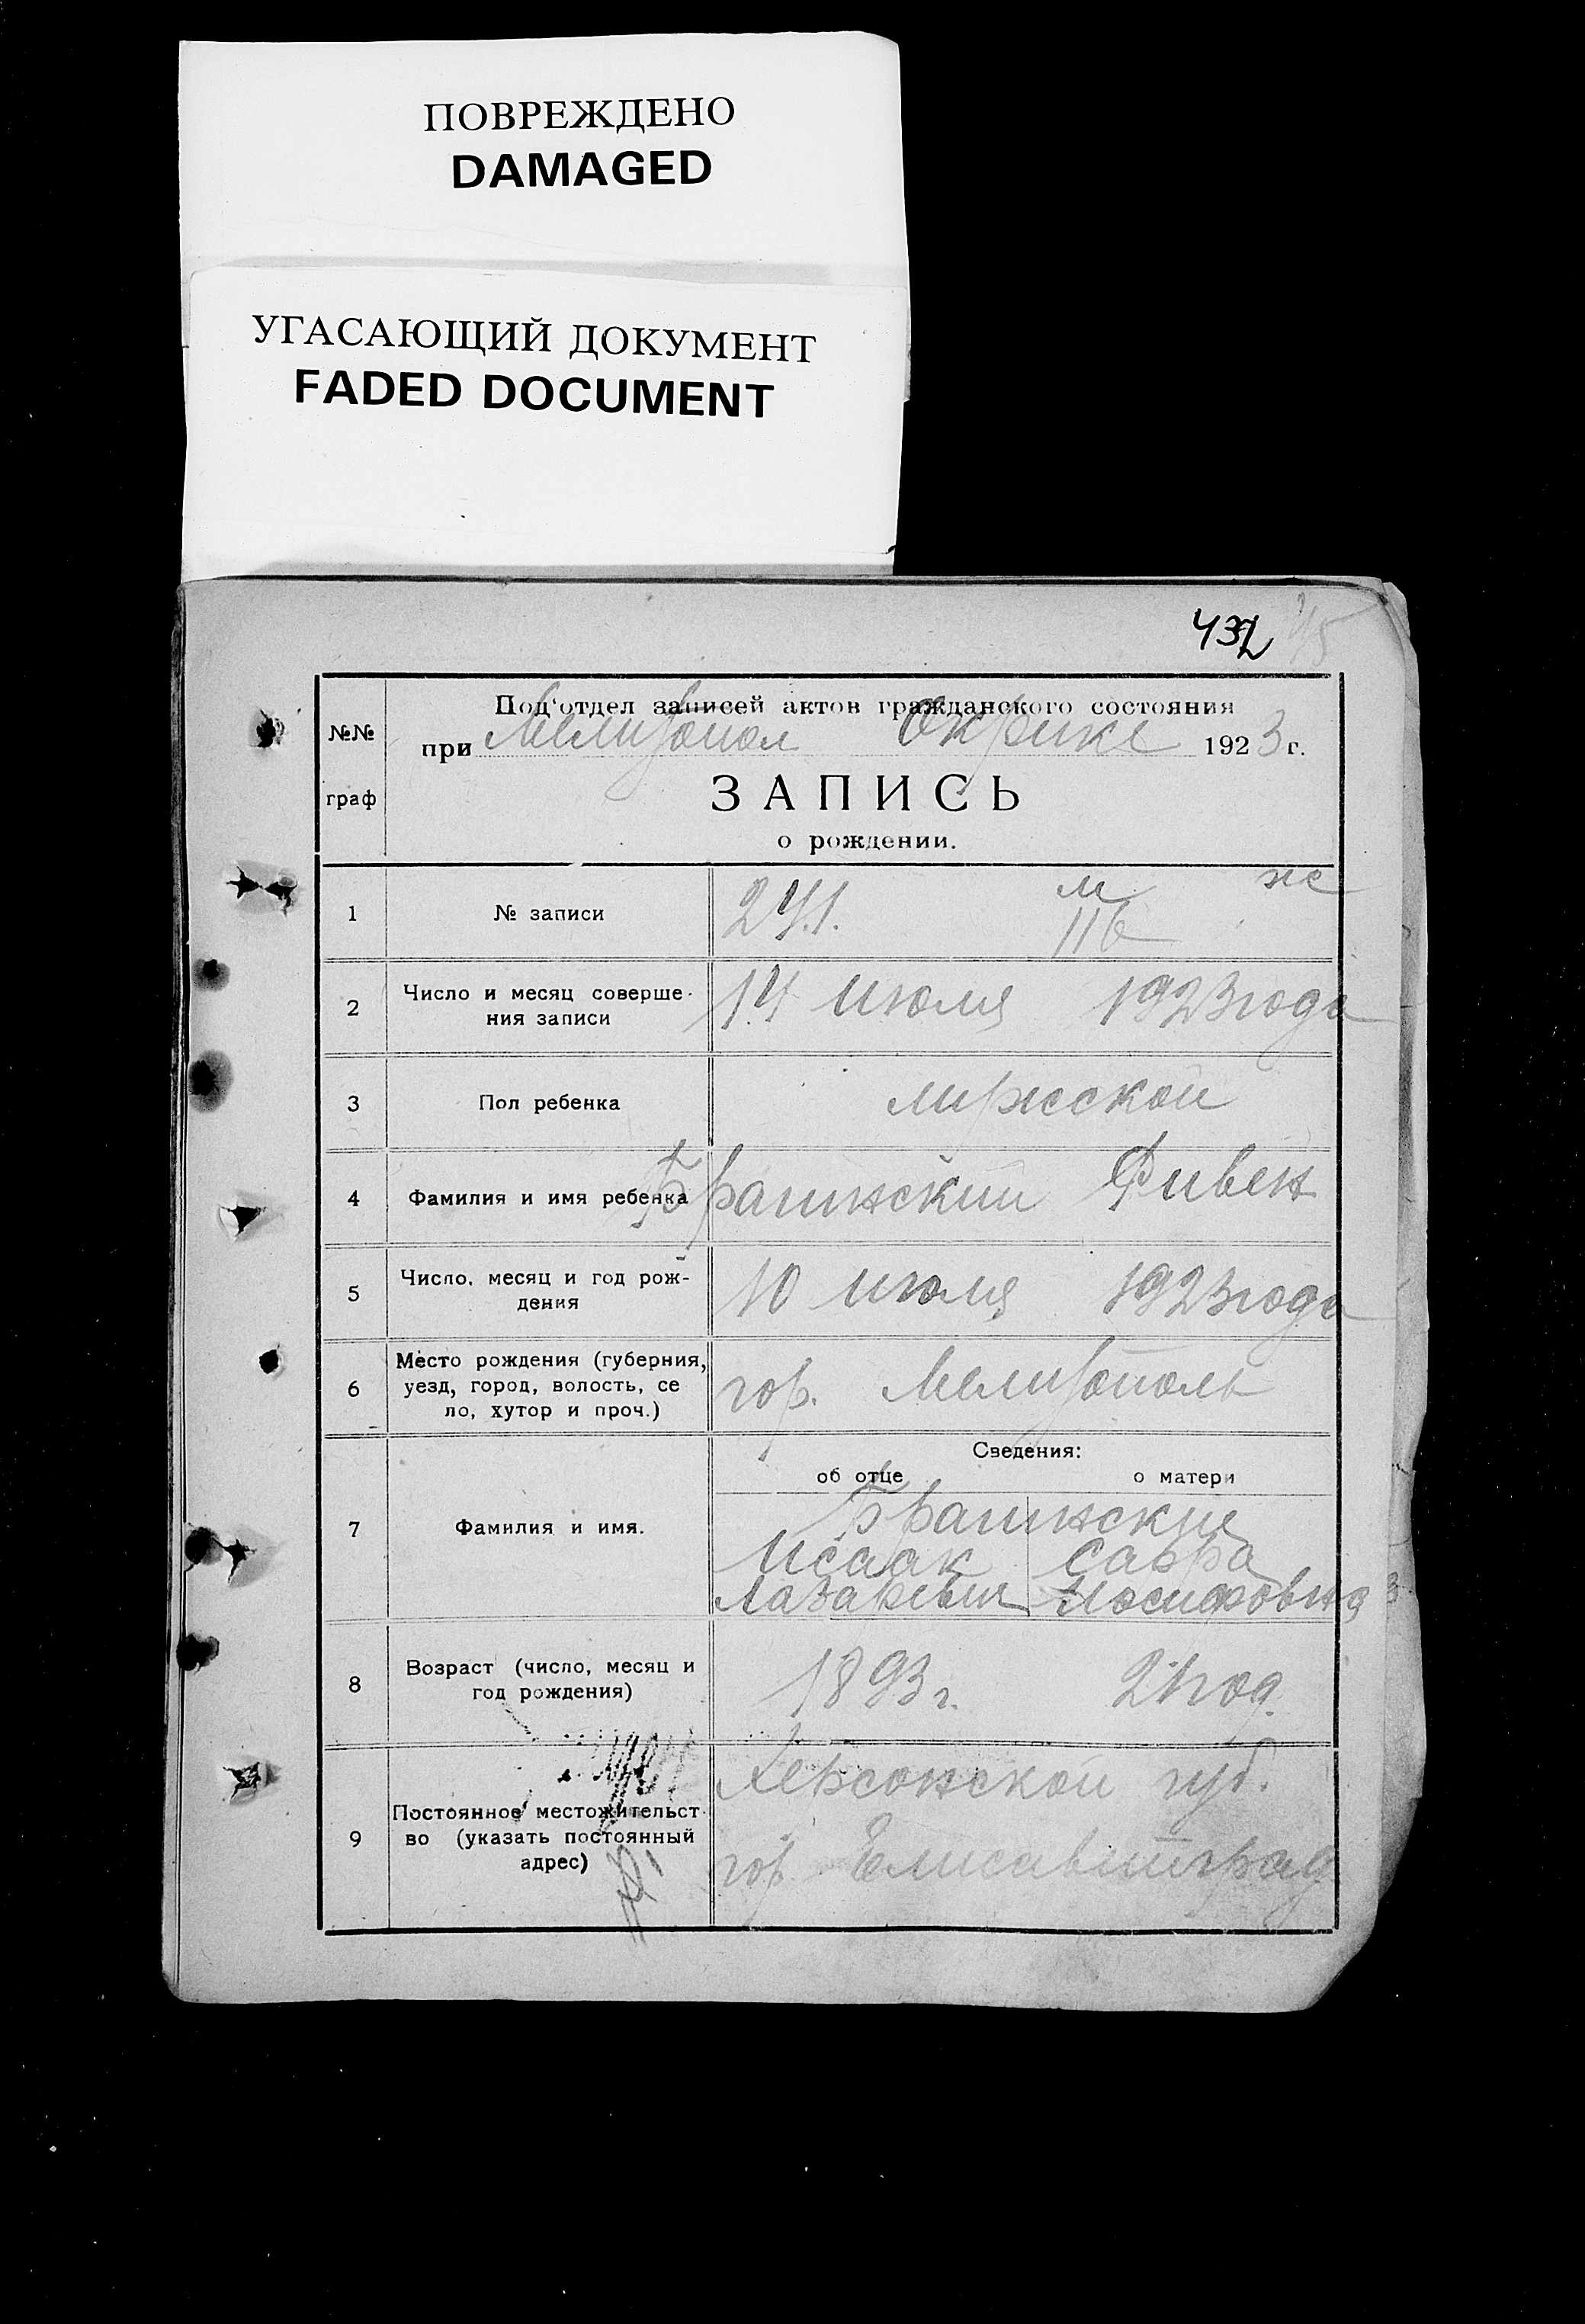 ПОВРЕЖДЕНО
DAMAGED
УГАСАЮЩИЙ ДОКУМЕНТ
FADED DOCUMENT
432
№№ граф
Под'отдел записей актов гражданского состояния
при Мелитопол Окрике 1923 г.
ЗАПИСЬ
о рождении.
м ж
1 № записи 241. 116
2 Число и месяц соверше-
ния записи 14 июля 1923 года
3 Пол ребенка мужской
4 Фамилия и имя ребенка Брагинский Фивен
5 Число, месяц и год рож-
дения 10 июля 1923 года
6 Место рождения (губерния,
уезд, город, волость, се
ло, хутор и проч.) гор. Мелитополь
Сведения:
об отце о матери
7 Фамилия и имя. Брагинские
Исаак Сарра
Лазаревич Иосифовна
8 Возраст (число, месяц и
год рождения) 1893 г. 21 год.
9 Постоянное местожительст-
во (указать постоянный
адрес)
Херсонской губ.
гор. Елисаветград